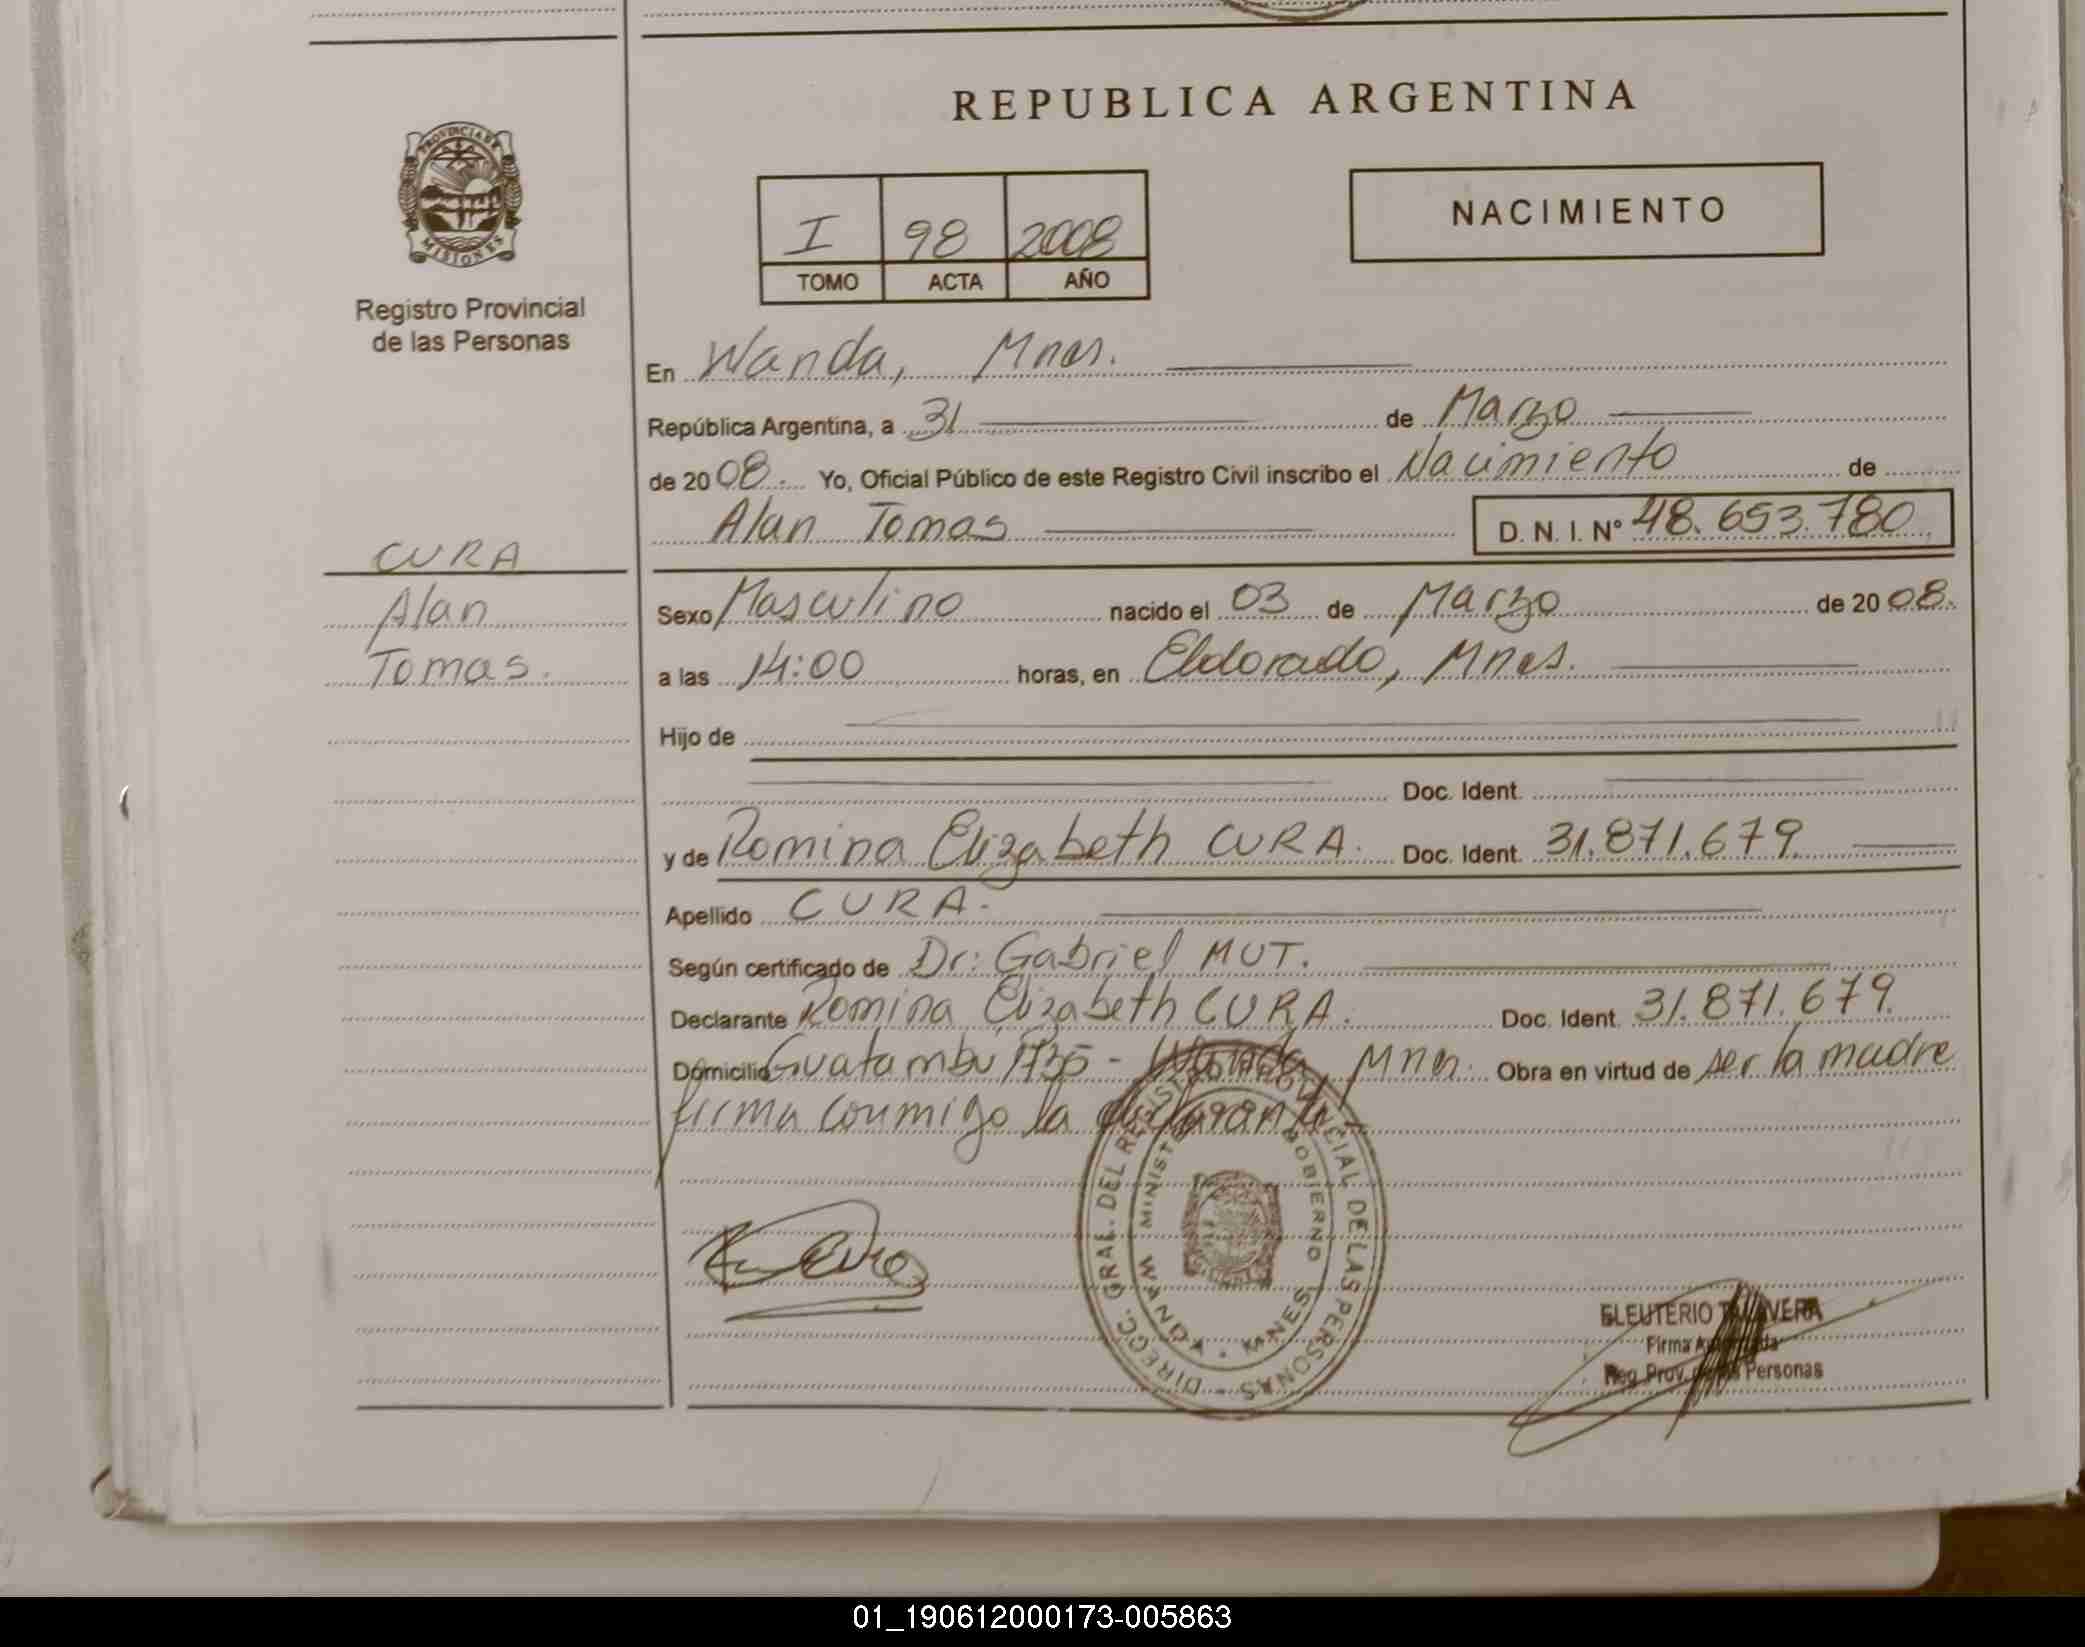 REPUBLICA ARGENTINA
PROVINCIA DE
MISIONES
Registro Provincial
de las Personas
I 98 2008
TOMO ACTA AÑO
NACIMIENTO
En Wanda, Mnes.
República Argentina, a 31 de Marzo
de 2008. Yo, Oficial Público de este Registro Civil inscribo el Nacimiento de
Alan Tomas D. N. I. Nº 48.653.780
CURA
Alan
Tomas.
Sexo Masculino nacido el 03 de Marzo de 2008.
a las 14:00 horas, en Eldorado, Mnes.
Hijo de
Doc. Ident.
y de Romina Elizabeth CURA. Doc. Ident. 31.871.679
Apellido CURA.
Según certificado de Dr: Gabriel MUT.
Declarante Romina Elizabeth CURA. Doc. Ident. 31.871.679.
Domicilio Guatambú 1735 - Wanda, Mnes. Obra en virtud de ser la madre
firma conmigo la declarante
DIRECC. GRAL. DEL REGISTRO PROVINCIAL DE LAS PERSONAS
GOBIERNO
WANDA - MNES
ELEUTERIO TALAVERA
Firma Autorizada
Reg. Prov. de las Personas
01_190612000173-005863